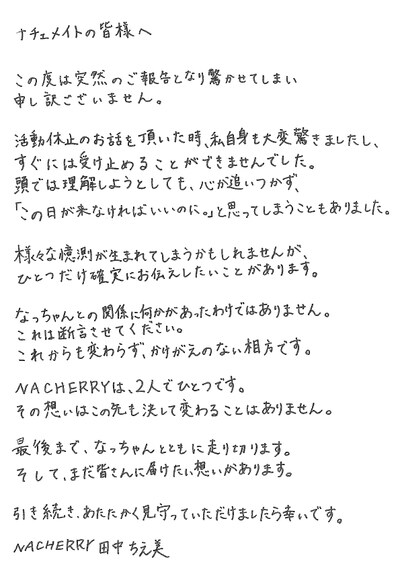 ナチェメイトの皆様へ
この度は突然のご報告となり驚かせてしまい
申し訳ございません。
活動休止のお話を頂いた時、私自身も大変驚きましたし、
すぐには受け止めることができませんでした。
頭では理解しようとしても、心が追いつかず、
「この日が来なければいいのに。」と思ってしまうこともありました。
様々な憶測が生まれてしまうかもしれませんが、
ひとつだけ確実にお伝えしたいことがあります。
なっちゃんとの関係に何かがあったわけではありません。
これは断言させてください。
これからも変わらず、かけがえのない相方です。
NACHERRYは、2人でひとつです。
その想いはこの先も決して変わることはありません。
最後まで、なっちゃんとともに走り切ります。
そして、まだ皆さんに届けたい想いがあります。
引き続き、あたたかく見守っていただけましたら幸いです。
NACHERRY 田中ちえ美